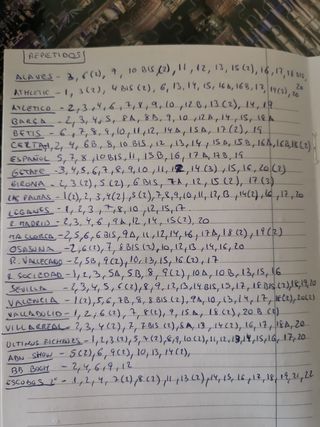 REPETIDOS
ALAVES - 3, 6(2), 9, 10 BIS(2), 11, 12, 13, 15(2), 16, 17, 18 BIS,
ATHLETIC - 1, 3(2), 4 BIS(2), 6, 13, 14, 15, 16A, 16B, 17, 19(2), 20
ATLETICO - 2, 3, 4, 6, 7, 8, 9, 10, 12B, 13(2), 14, 17
BARÇA - 2, 3, 4, 5, 8A, 8B, 9, 10, 12A, 14, 15, 18A
BETIS - 6, 7, 8, 9, 10, 11, 12, 14A, 15A, 17(2), 19
CELTA(2), 2, 4, 6B, 8, 10 BIS, 12, 13, 14, 15A, 15B, 16A, 16B, 18(2)
ESPAÑOL 5, 7, 8, 10 BIS, 11, 13B, 16, 17A, 17B, 19
GETAFE - 3, 4, 5, 6, 7, 8, 9, 10, 11, 14(3), 15, 16, 20(2)
GIRONA - 2, 3(2), 5(2), 6 BIS, 7A, 12, 15(2), 17(3)
LAS PALMAS - 1(2), 2, 3, 4(2), 5(2), 7, 8, 9, 10, 11, 12, 14(2), 16, 17, 20
LEGANES - 1, 2, 3, 7, 8, 10, 12, 15, 17
R. MADRID - 2, 3, 4, 6, 9A, 12, 14, 15(2), 20
MALLORCA - 2, 5, 6, 6 BIS, 9A, 11, 12, 14, 16, 17A, 18(2), 19(2)
OSASUNA - 2, 6(2), 7, 8 BIS(2), 10, 12, 13, 14, 16, 20
R. VALLECANO - 2, 5B, 9(2), 10, 13, 15, 16(2), 17
R. SOCIEDAD - 1, 2, 3, 5A, 5B, 8, 9(2), 10A, 10B, 13, 15, 16
SEVILLA - 2, 3, 4, 5, 6(2), 8, 9, 12, 13, 14 BIS, 15, 17, 18 BIS(2), 18, 19, 20
VALENCIA - 1(2), 5, 6, 7B, 8, 8 BIS(2), 9A, 10, 13, 14, 17, 18(2), 20(2)
VALLADOLID - 1, 2, 6(2), 7, 8(2), 9, 15A, 18(2), 20B(2)
VILLARREAL - 2, 3, 4(2), 7, 7 BIS(2), 8A, 13, 14(2), 16, 17, 18A, 20
ULTIMOS FICHAJES - 1, 2, 3(2), 5, 6(2), 8, 9, 10(2), 11, 12, 13, 14, 15, 16, 17, 20
ADN SHOW - 5(2), 6, 9(2), 10, 13, 14(2)
BB BOOM - 2, 4, 6, 9, 12
ESCUDOS - 1, 2, 4, 7(2), 8(2), 11, 13(2), 14, 15, 16, 17, 18, 19, 21, 22